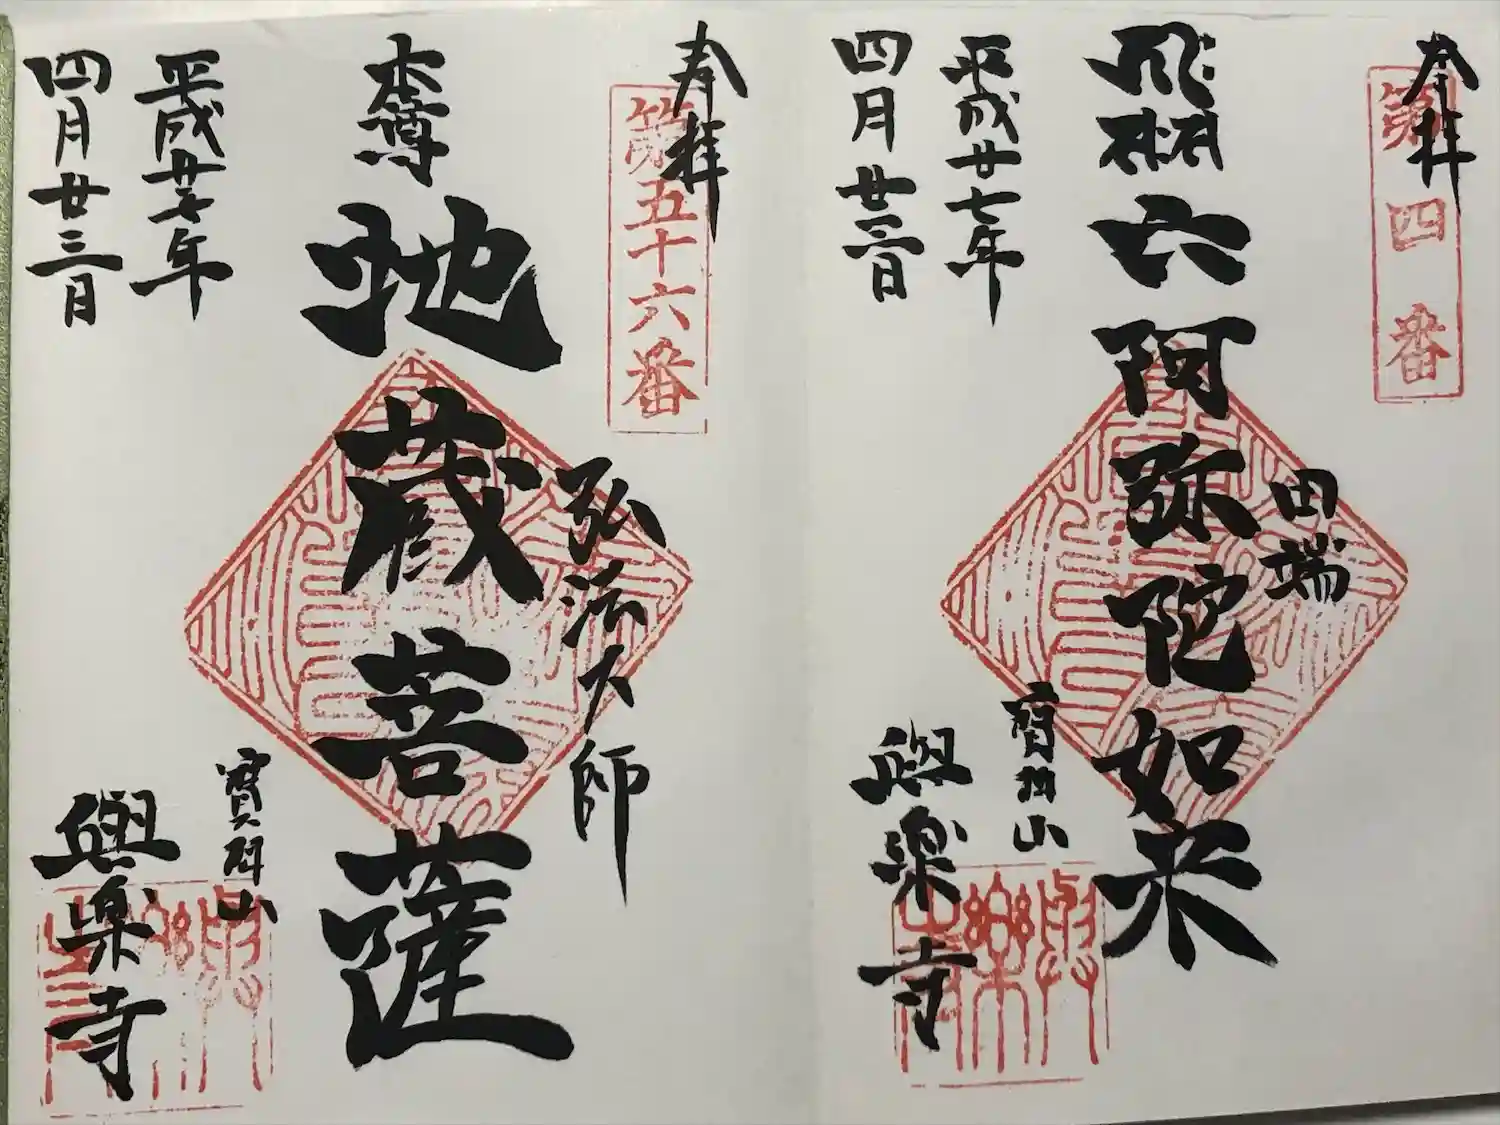 奉拝
第四番
田端
六阿弥陀如来
平成廿七年
四月廿三日
寶珠山
與楽寺
與樂寺
奉拝
第五十六番
弘法大師
本尊 地蔵菩薩
平成廿七年
四月廿三日
寶珠山
與楽寺
與樂寺